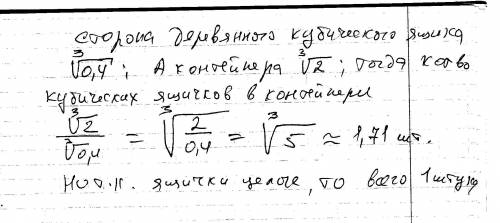 сторона деревянного кубического ящика
∛0,4; А контейнера ∛2; тогда кол-во
кубических ящичков в контейнере
∛2 / ∛0,4 = ∛(2/0,4) = ∛5 ≈ 1,71 шт.
Но т.к. ящички целые, то всего 1 штука